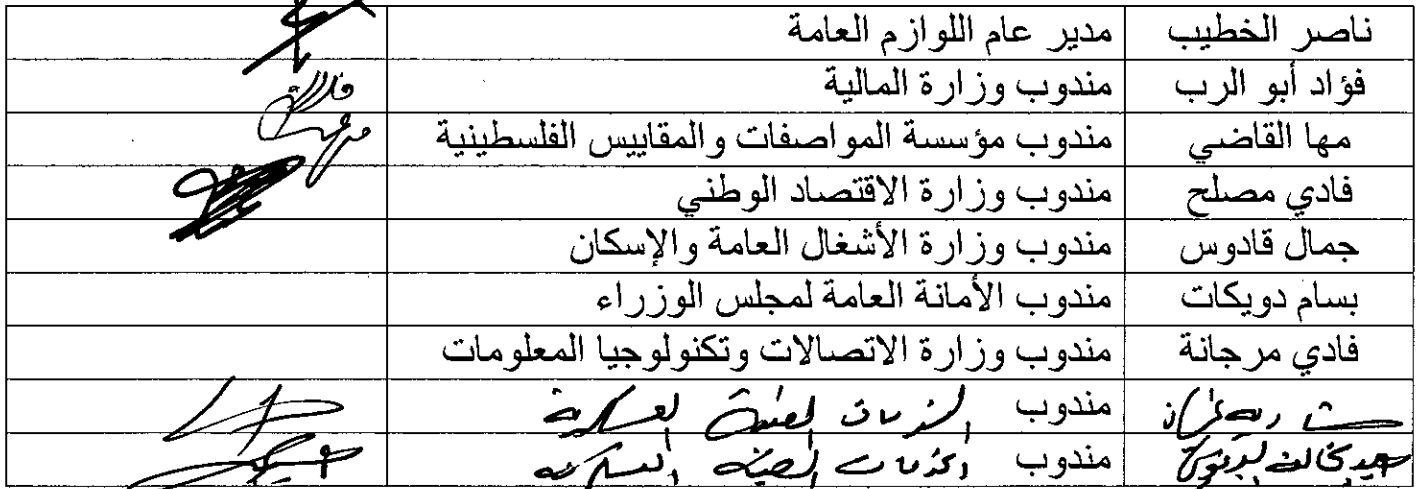 ناصر الخطيب مدير عام اللوازم العامة
فؤاد أبو الرب مندوب وزارة المالية
مها القاضي مندوب مؤسسة المواصفات والمقاييس الفلسطينية
فادي مصلح مندوب وزارة الاقتصاد الوطني
جمال قادوس مندوب وزارة الأشغال العامة والإسكان
بسام دويكات مندوب الأمانة العامة لمجلس الوزراء
فادي مرجانة مندوب وزارة الاتصالات وتكنولوجيا المعلومات
مندوب الخدمات الطبية العسكرية
مندوب الخدمات الطبية العسكرية